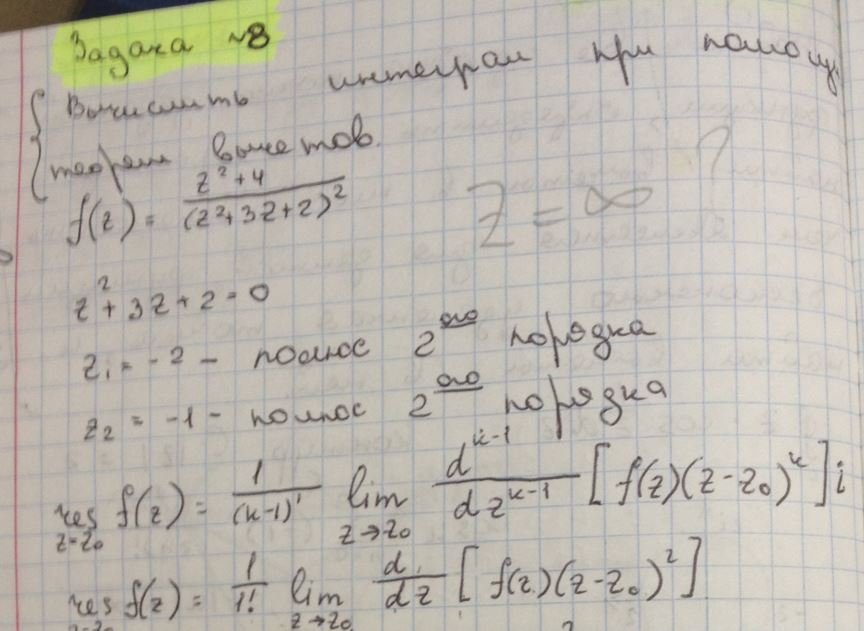 Задача №8
Вычислить интеграл при помощи
теории вычетов.
f(z) = \frac{z^2+4}{(z^2+3z+2)^2}
z = ∞ ?
z^2+3z+2=0
z_1 = -2 - полюс 2^{ого} порядка
z_2 = -1 - полюс 2^{ого} порядка
res_{z=z_0} f(z) = \frac{1}{(k-1)!} lim_{z→z_0} \frac{d^{k-1}}{dz^{k-1}} [f(z)(z-z_0)^k] i
res f(z) = \frac{1}{1!} lim_{z→z_0} \frac{d}{dz} [f(z)(z-z_0)^2]